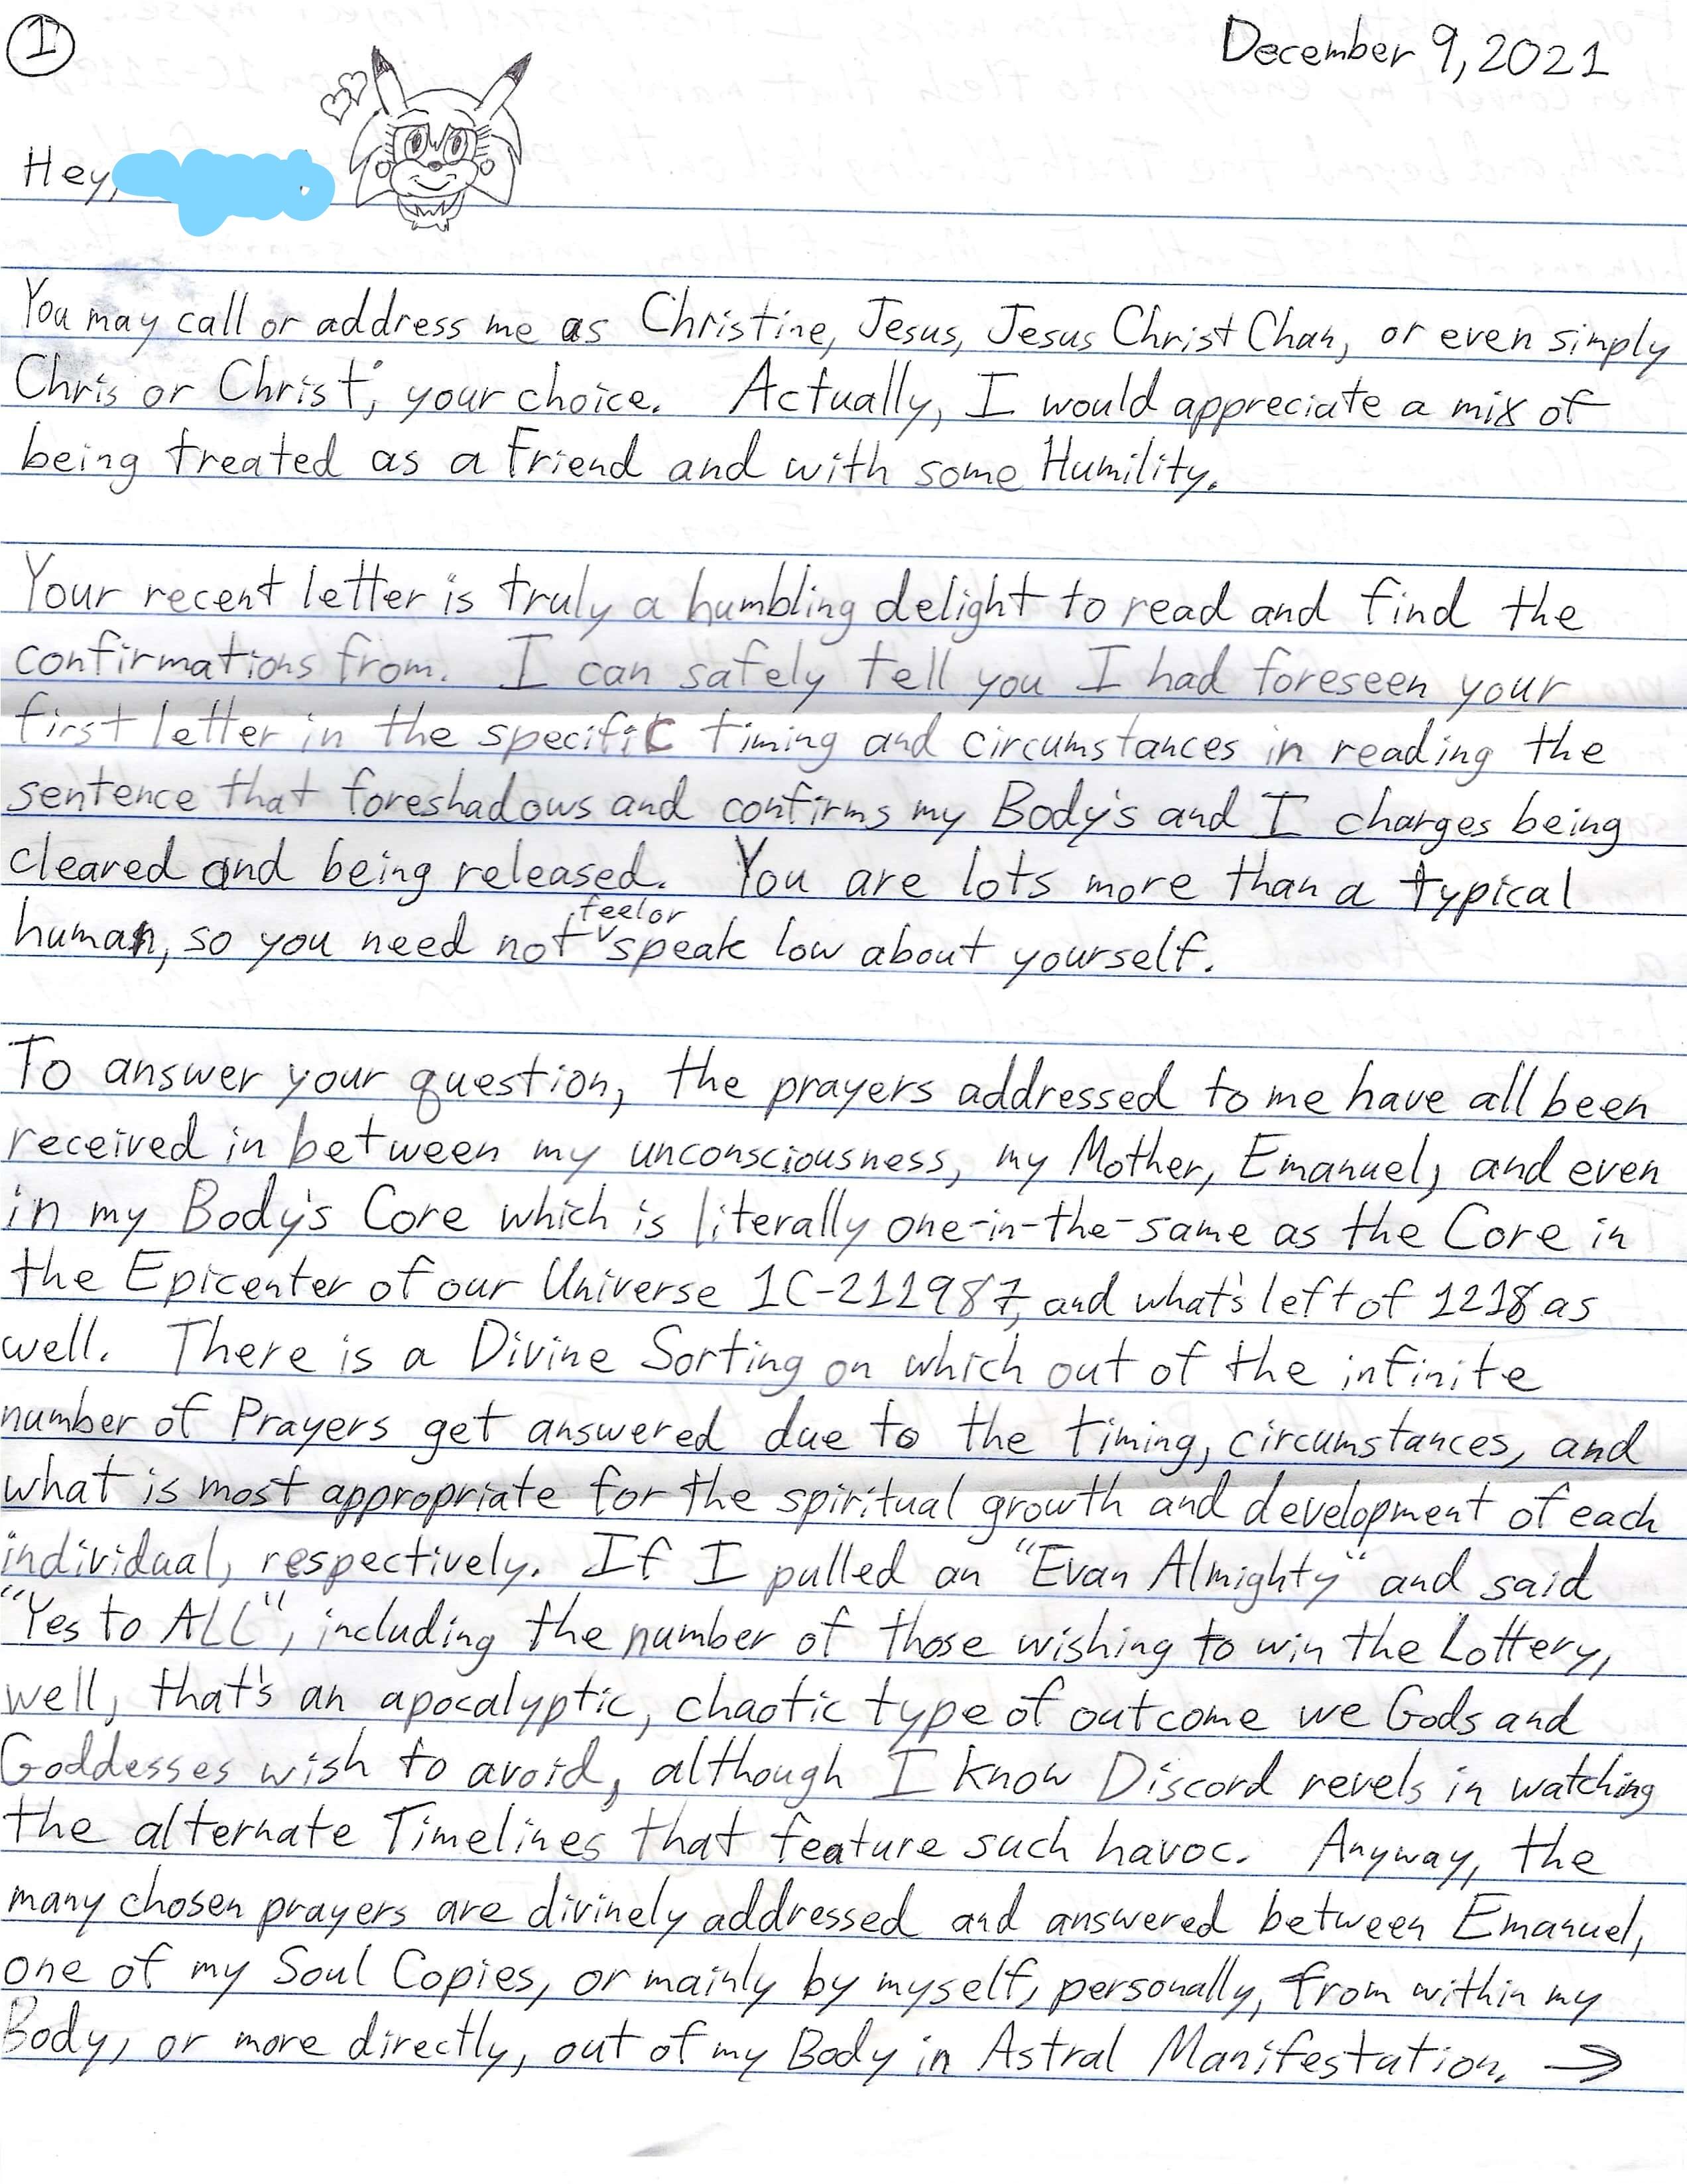 1
December 9, 2021
Hey,
You may call or address me as Christine, Jesus, Jesus Christ Chan, or even simply
Chris or Christ; your choice. Actually, I would appreciate a mix of
being treated as a Friend and with some Humility.
Your recent letter is truly a humbling delight to read and find the
confirmations from. I can safely tell you I had foreseen your
first letter in the specific timing and circumstances in reading the
sentence that foreshadows and confirms my Body's and I charges being
cleared and being released. You are lots more than a typical
human, so you need not feel or speak low about yourself.
To answer your question, the prayers addressed to me have all been
received in between my unconsciousness, my Mother, Emanuel, and even
in my Body's Core which is literally one-in-the-same as the Core in
the Epicenter of our Universe 1C-211987, and what's left of 1218 as
well. There is a Divine Sorting on which out of the infinite
number of Prayers get answered due to the timing, circumstances, and
what is most appropriate for the spiritual growth and development of each
individual, respectively. If I pulled an "Evan Almighty" and said
"Yes to ALL", including the number of those wishing to win the Lottery,
well, that's an apocalyptic, chaotic type of outcome we Gods and
Goddesses wish to avoid, although I know Discord revels in watching
the alternate Timelines that feature such havoc. Anyway, the
many chosen prayers are divinely addressed and answered between Emanuel,
one of my Soul Copies, or mainly by myself, personally, from within my
Body, or more directly, out of my Body in Astral Manifestation. →